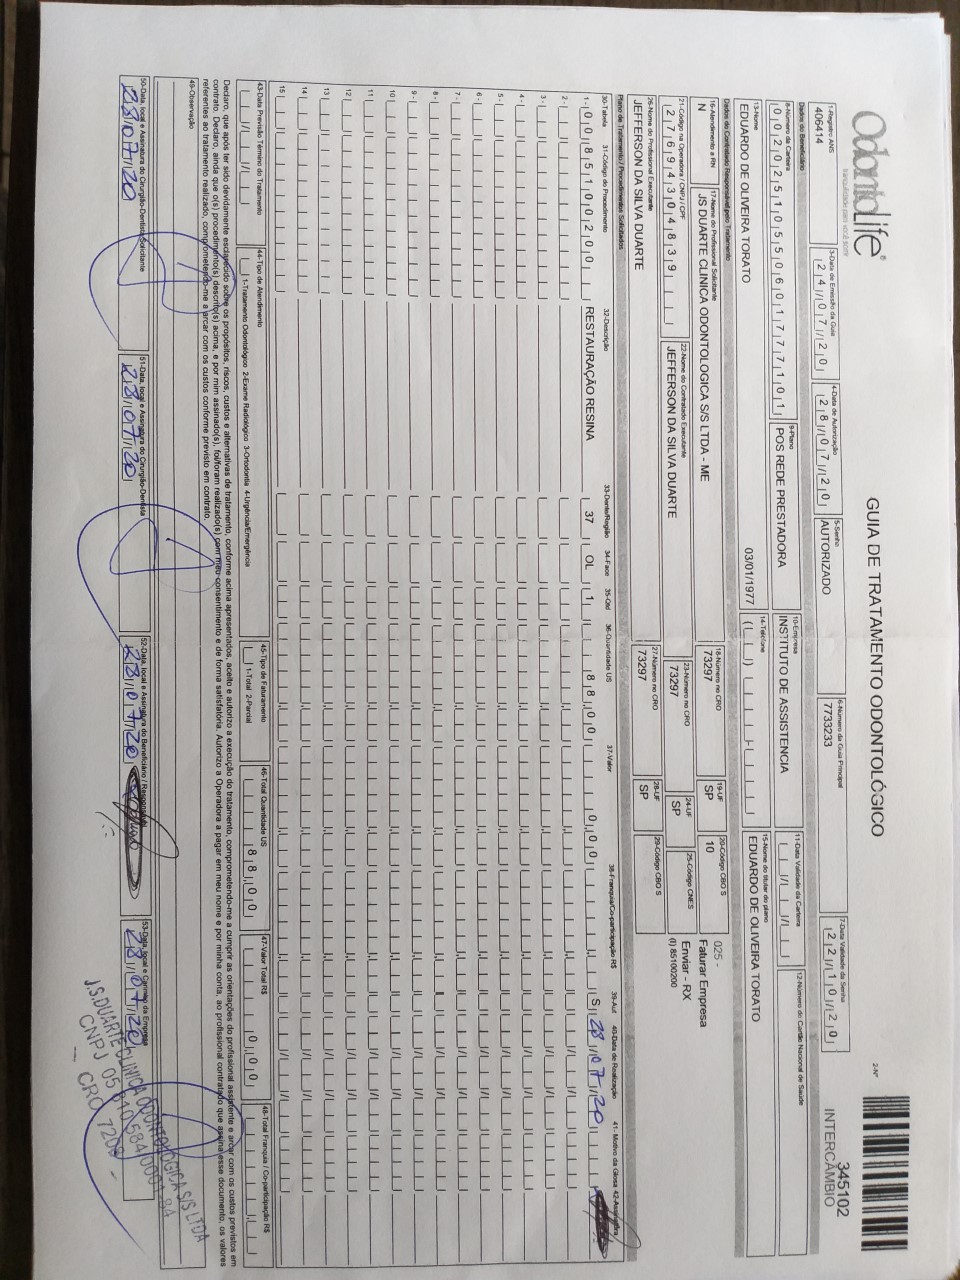 OdontoLife®
tranquilidade para você sorrir
GUIA DE TRATAMENTO ODONTOLÓGICO
2-Nº
345102
INTERCÂMBIO
1-Registro ANS
406414
3-Data de Emissão da Guia
24/07/20
4-Data de Autorização
28/07/20
5-Senha
AUTORIZADO
6-Número da Guia Principal
7733233
7-Data Validade da Senha
22/10/20
Dados do Beneficiário
8-Número da Carteira
00202510550601777101
9-Plano
POS REDE PRESTADORA
10-Empresa
INSTITUTO DE ASSISTENCIA
11-Data Validade da Carteira
12-Número do Cartão Nacional de Saúde
13-Nome
EDUARDO DE OLIVEIRA TORATO
03/01/1977
14-Telefone
15-Nome do titular do plano
EDUARDO DE OLIVEIRA TORATO
Dados do Contratado Responsável pelo Tratamento
16-Atendimento a RN
N
17-Nome do Profissional Solicitante
JS DUARTE CLINICA ODONTOLOGICA S/S LTDA - ME
18-Número no CRO
73297
19-UF
SP
20-Código CBO S
10
025 -
Faturar Empresa
Enviar - RX
(I) 85100200
21-Código na Operadora / CNPJ / CPF
27694304839
22-Nome do Contratado Executante
JEFFERSON DA SILVA DUARTE
23-Número no CRO
73297
24-UF
SP
25-Código CNES
26-Nome do Profissional Executante
JEFFERSON DA SILVA DUARTE
27-Número no CRO
73297
28-UF
SP
29-Código CBO S
Plano de Tratamento / Procedimentos Solicitados
30-Tabela 31-Código do Procedimento 32-Descrição 33-Dente/Região 34-Face 35-Qtd 36-Quantidade US 37-Valor 38-Franquia/Co-participação R$ 39-Aut 40-Data de Realização 41- Motivo da Glosa 42-Assinatura
1- 00 85100200 RESTAURAÇÃO RESINA 37 OL 1 88,00 0,00 S 28/07/20
2-
3-
4-
5-
6-
7-
8-
9-
10
11
12
13
14
15
43-Data Previsão Término do Tratamento
44-Tipo de Atendimento
1-Tratamento Odontológico 2-Exame Radiológico 3-Ortodontia 4-Urgência/Emergência
45-Tipo de Faturamento
1-Total 2-Parcial
46-Total Quantidade US
88,00
47-Valor Total R$
0,00
48-Total Franquia / Co-participação R$
Declaro, que após ter sido devidamente esclarecido sobre os propósitos, riscos, custos e alternativas de tratamento, conforme acima apresentados, aceito e autorizo a execução do tratamento, comprometendo-me a cumprir as orientações do profissional assistente e arcar com os custos previstos em
contrato. Declaro, ainda que o(s) procedimento(s) descrito(s) acima, e por mim assinado(s), foi/foram realizado(s) com meu consentimento e de forma satisfatória. Autorizo a Operadora a pagar em meu nome e por minha conta, ao profissional contratado que assina esse documento, os valores
referentes ao tratamento realizado, comprometendo-me a arcar com os custos conforme previsto em contrato.
49-Observação
50-Data, local e Assinatura do Cirurgião-Dentista Solicitante
28/07/20
51-Data, local e Assinatura do Cirurgião-Dentista
28/07/20
52-Data, local e Assinatura do Beneficiário / Responsável
28/07/20
53-Data, local e Carimbo da Empresa
28/07/20
J.S.DUARTE CLINICA ODONTOLOGICA S/S LTDA
CNPJ 05
CRO 7208